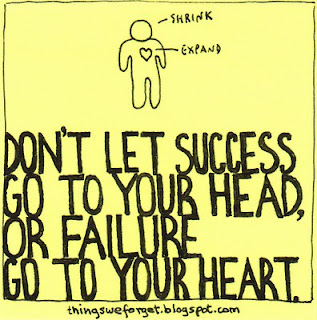 SHRINK
EXPAND
DON'T LET SUCCESS
GO TO YOUR HEAD,
OR FAILURE
GO TO YOUR HEART.
thingsweforget.blogspot.com